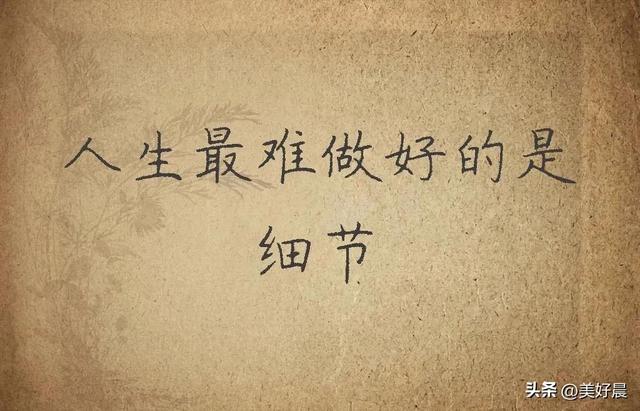 人生最难做好的是
细节
头条@美好晨